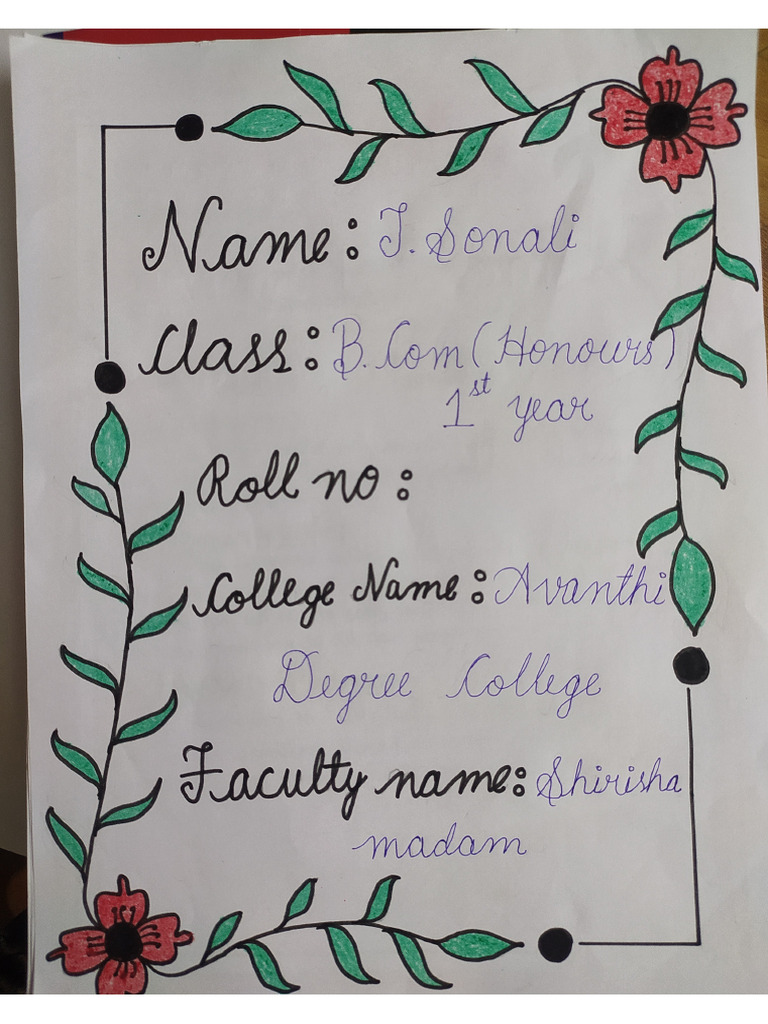 Name: J. Sonali
Class: B.Com (Honours)
1st year
Roll no:
College Name: Avanthi
Degree College
Faculty name: Shirisha
madam